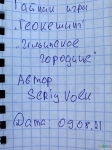 Тайник игры
"Геокешинг"
"Ильинское
городище"
Автор
Seriy Volk
Дата 09.08.21